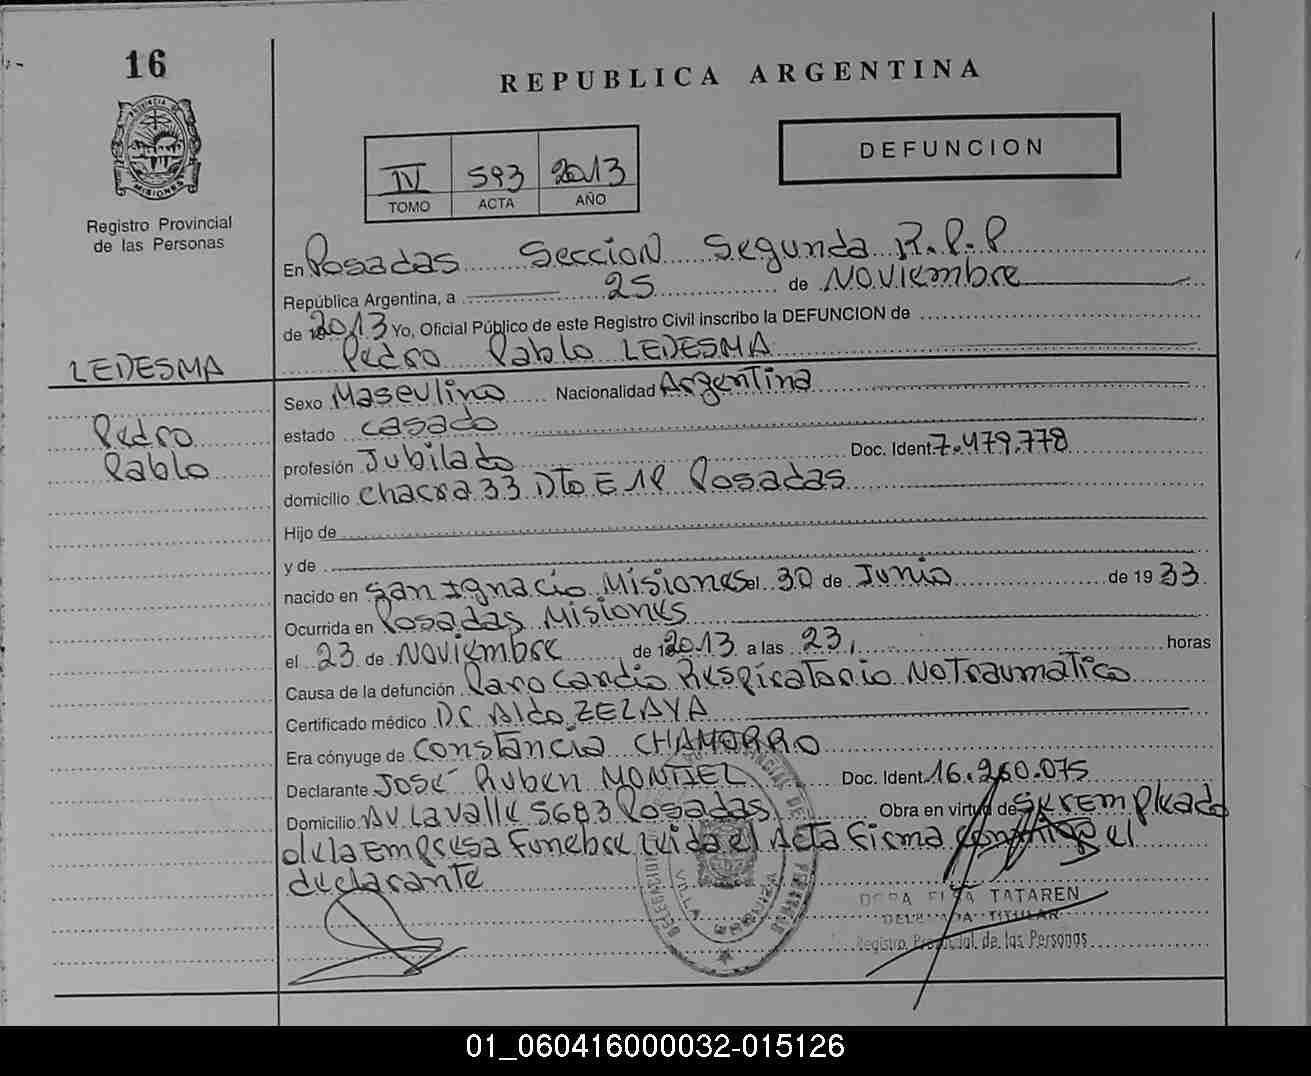 16
REPUBLICA ARGENTINA
PROVINCIA DE
MISIONES
Registro Provincial
de las Personas
IV 593 2013
TOMO ACTA AÑO
DEFUNCION
En Posadas Seccion Segunda R.P.P
República Argentina, a 25 de Noviembre
de 2013 Yo, Oficial Público de este Registro Civil inscribo la DEFUNCION de
Pedro Pablo LEDESMA
LEDESMA
Pedro
Pablo
Sexo Masculino Nacionalidad Argentina
estado casado
profesión Jubilado Doc. Ident. 7.479.778
domicilio Chacra 33 Dto E 1P Posadas
Hijo de
y de
nacido en San Ignacio Misiones el 30 de Junio de 1933
Ocurrida en Posadas Misiones
el 23 de Noviembre de 2013 a las 23, horas
Causa de la defunción Paro Cardio Respiratorio No Traumático
Certificado médico Dr Aldo ZELAYA
Era cónyuge de Constancia CHAMORRO
Declarante José Ruben MONTIEL Doc. Ident. 16.260.075
Domicilio Av Lavalle 5683 Posadas Obra en virtud de ser empleado
de la Empresa Funebre leida el Acta firma el
declarante
TATAREN
TITULAR
Registro Provincial de las Personas
01_060416000032-015126